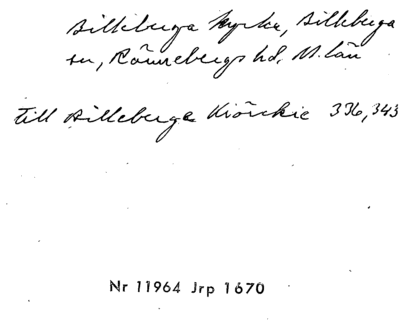 Billeberga kyrka, Billeberga
sn, Rönnebergs hd, M. län
till Billeberga Kiörckie 336, 343
Nr 11964 Jrp 1670